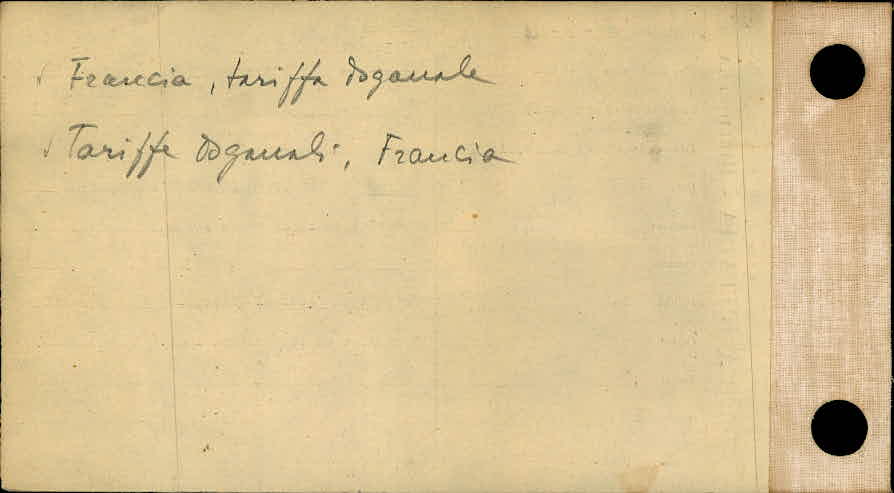 √ Francia, tariffa doganale
√ Tariffe doganali, Francia